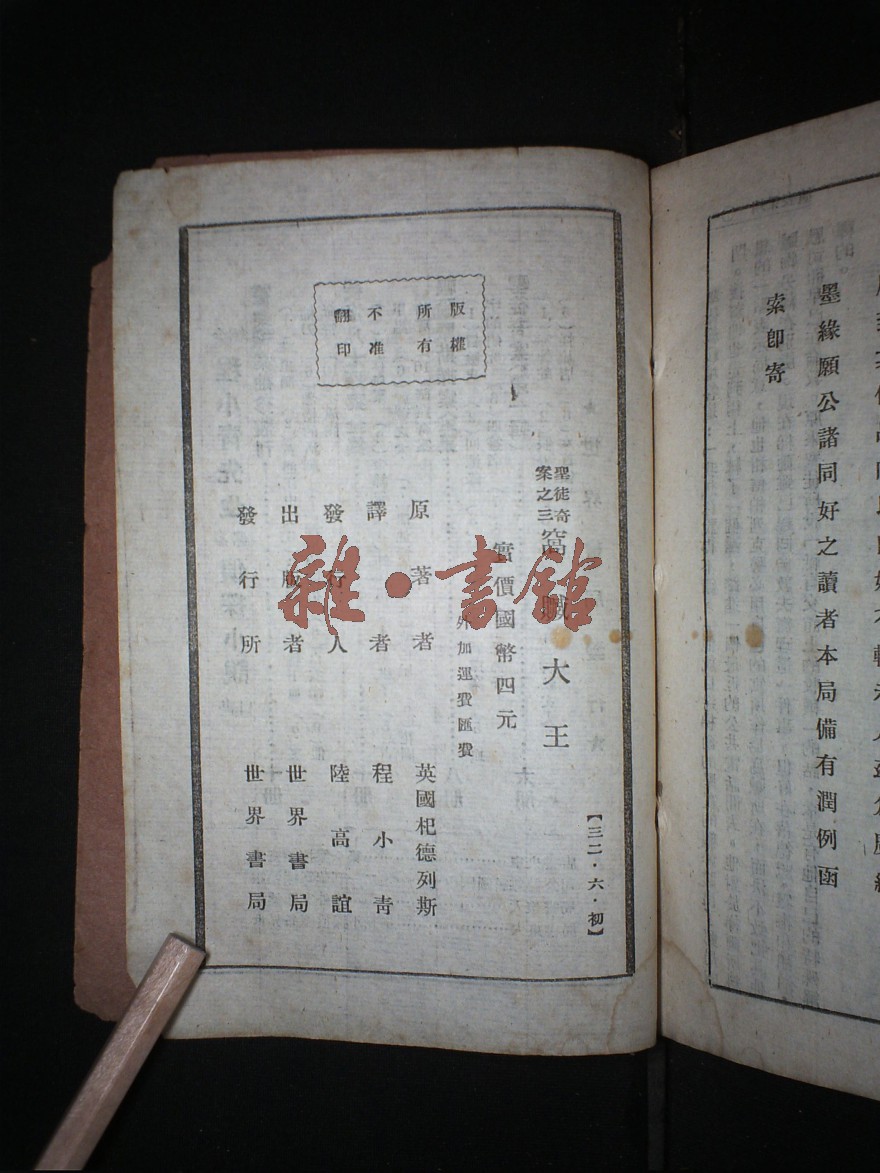 版權
所有
不准
翻印
【三二·六·初】
聖徒奇
案之三
窩贓大王
實價國幣四元
外加運費匯費
原著者 英國杞德列斯
譯者 程小青
發行人 陸高誼
出版者 世界書局
發行所 世界書局
雜·書館
墨緣願公諸同好之讀者本局備有潤例函
索即寄